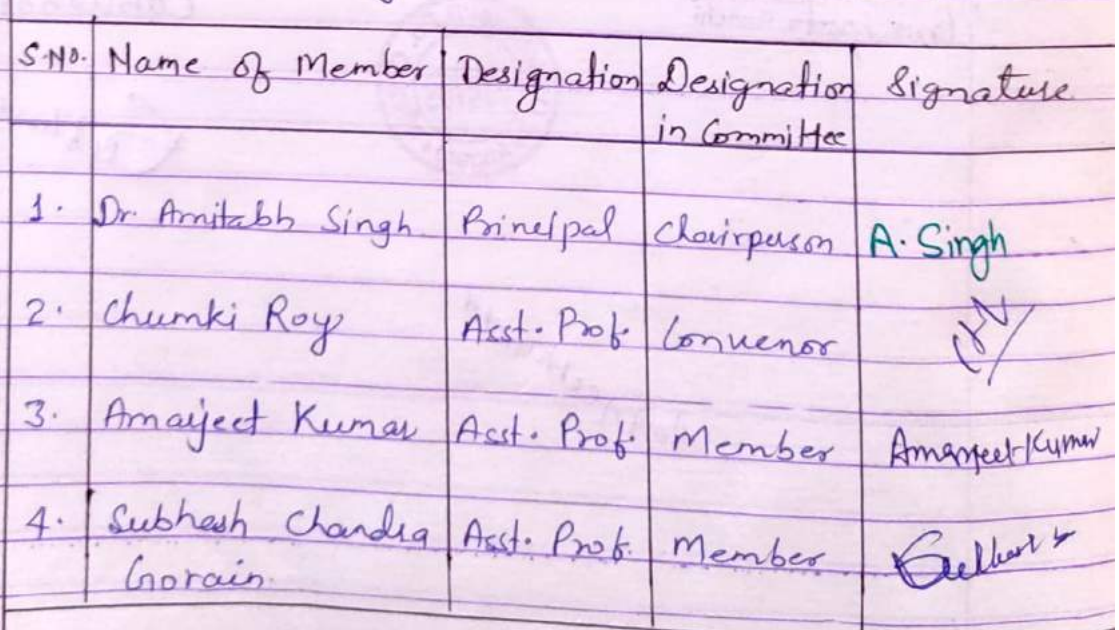 S.No. Name of Member Designation Designation in Committee Signature
1. Dr. Amitabh Singh Principal Chairperson A. Singh
2. Chumki Roy Asst. Prof. Convenor
3. Amarjeet Kumar Asst. Prof. Member Amarjeet Kumar
4. Subhesh Chandra Asst. Prof. Member
Gorain